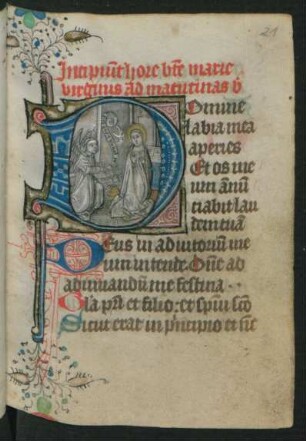 21
Incipiūt hore bte marie
virginis ad matutinas v
Domine
labia mea
aperies
Et os me
um ānū
ciabit lau
dem tuā
Deus in adiutoriū me
um intende Dūe ad
adiuuandū me festina
Gla p̄ri et filio et spūi sco
Sicut erat in principio et nūc